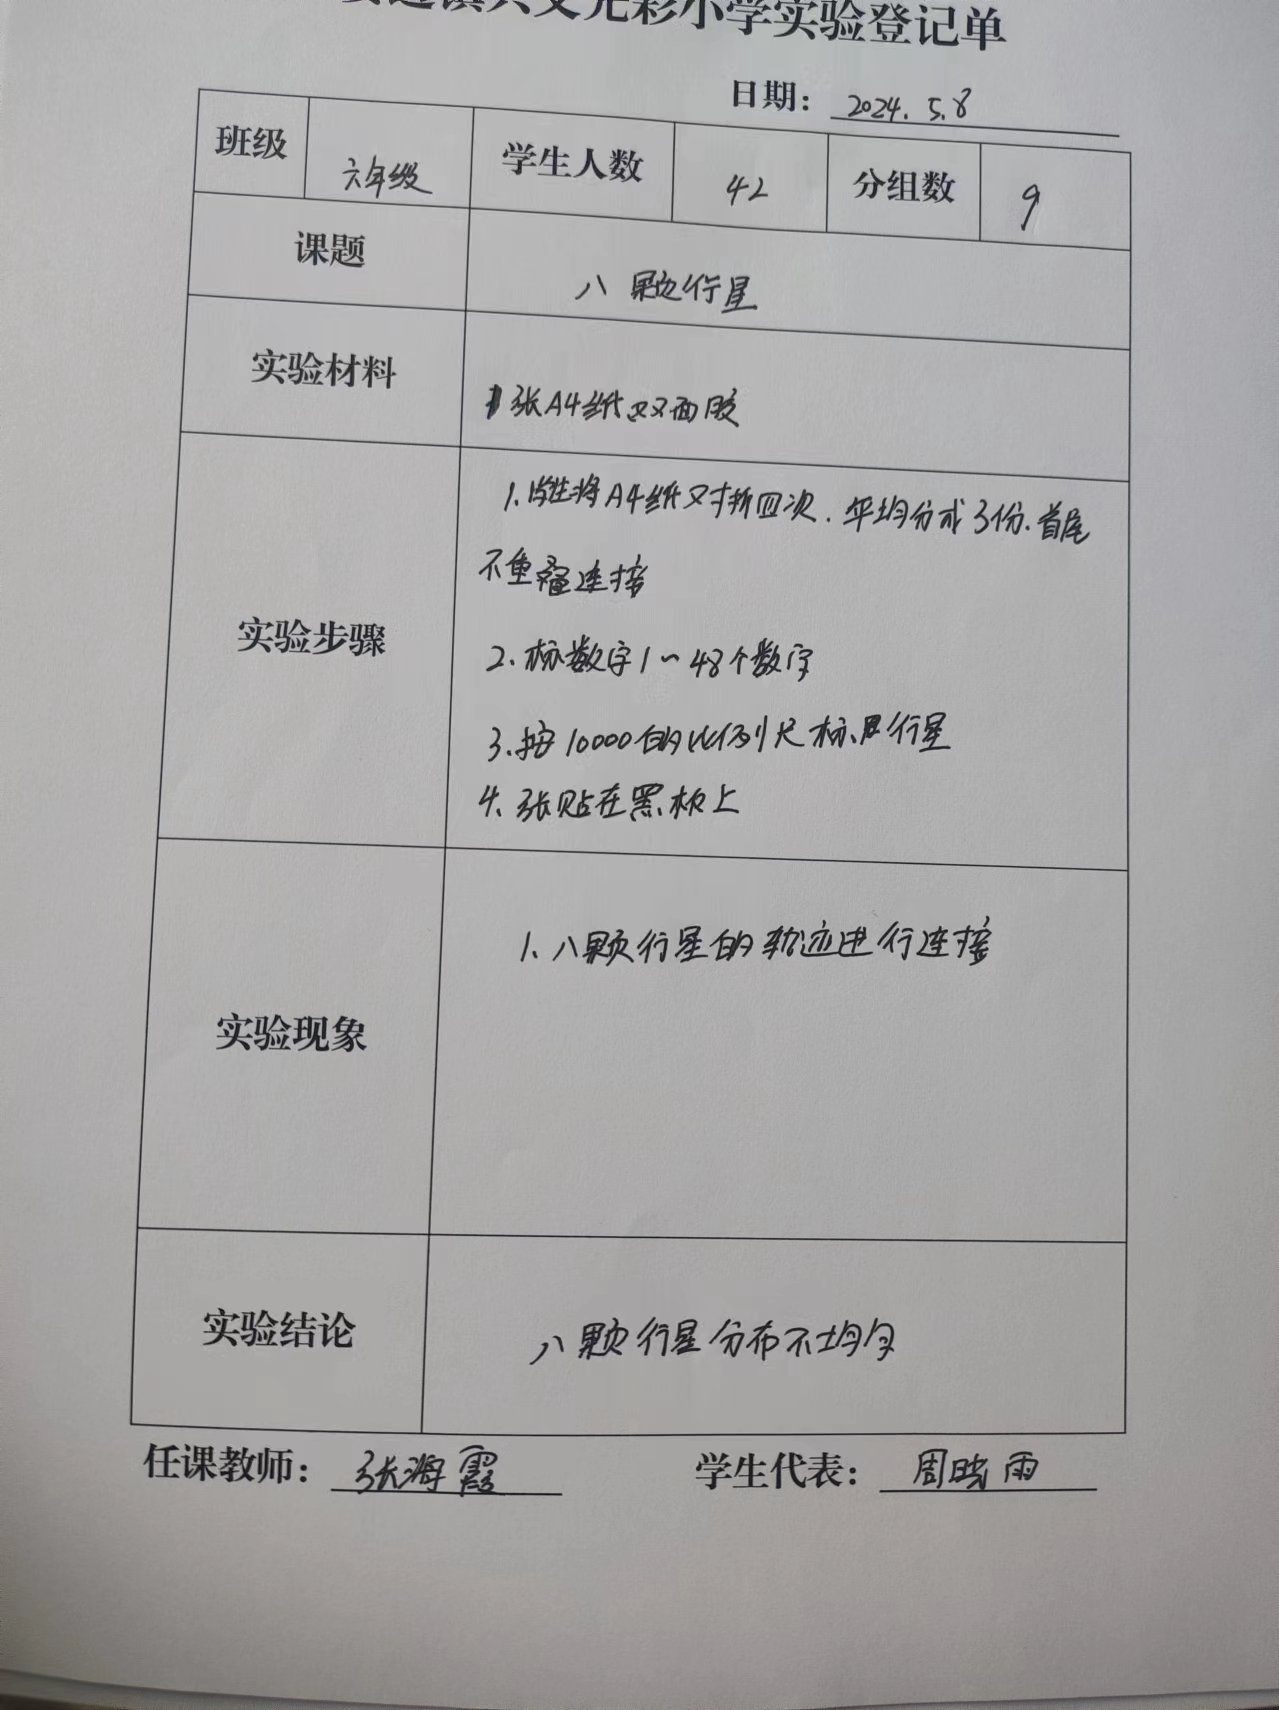 兴文光彩小学实验登记单
日期：2024.5.8
班级 六年级 学生人数 42 分组数 9
课题 八颗行星
实验材料 1张A4纸 双面胶
实验步骤
1.将A4纸对折四次.平均分成3份.首尾
不重叠连接
2.标数字1~48个数字
3.按10000的比例尺标行星
4.张贴在黑板上
实验现象
1.八颗行星的轨迹进行连接
实验结论 八颗行星分布不均匀
任课教师：张海霞 学生代表：周晓雨